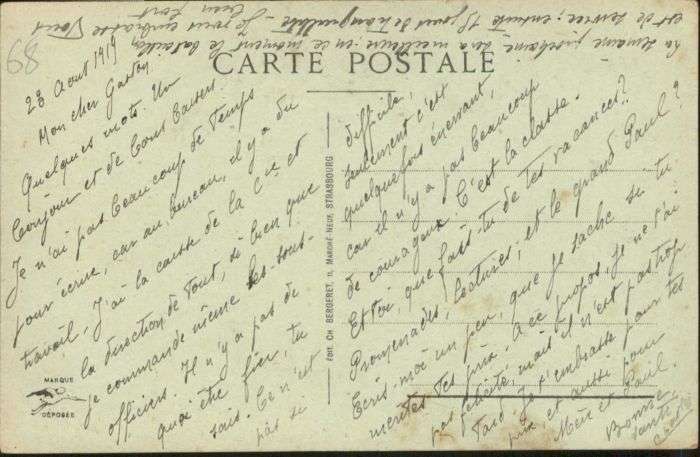 89
CARTE POSTALE
28 Aout 1919
Mon cher Gaston
Quelques mots. Un
bonjour et de bons baisers.
Je n'ai pas beaucoup de temps
pour écrire, car au bureau, il y a du
travail, J'ai la caisse de la Cie et
la direction de tout, si bien que
je commande même les sous-
officiers. Il n'y a pas de
quoi être fier, tu
sais. Ce n'est
pas si
difficile,
seulement c'est
quelquefois énervant,
car il n'y a pas beaucoup
de courageux. C'est la classe.
Et toi, que fais-tu de tes vacances?
Promenades, lectures; et le grand Paul?
Ecris-moi un peu, que je sache si tu
mérites tes prix. A ce propos. je ne t'ai
pas félicité, mais il n'est pas trop
tard. Je t'embrasse pour tes
prix, et aussi pour
Mem et Paul.
Bonne
santé
La semaine prochaine sera meilleure; en ce moment le bataillon
est de service; ensuite 18 jours de tranquillité. Je vous embrasse tous
bien fort
EDIT. CH. BERGERET, 11, MARCHÉ-NEUF, STRASBOURG
MARQUE
DÉPOSÉE